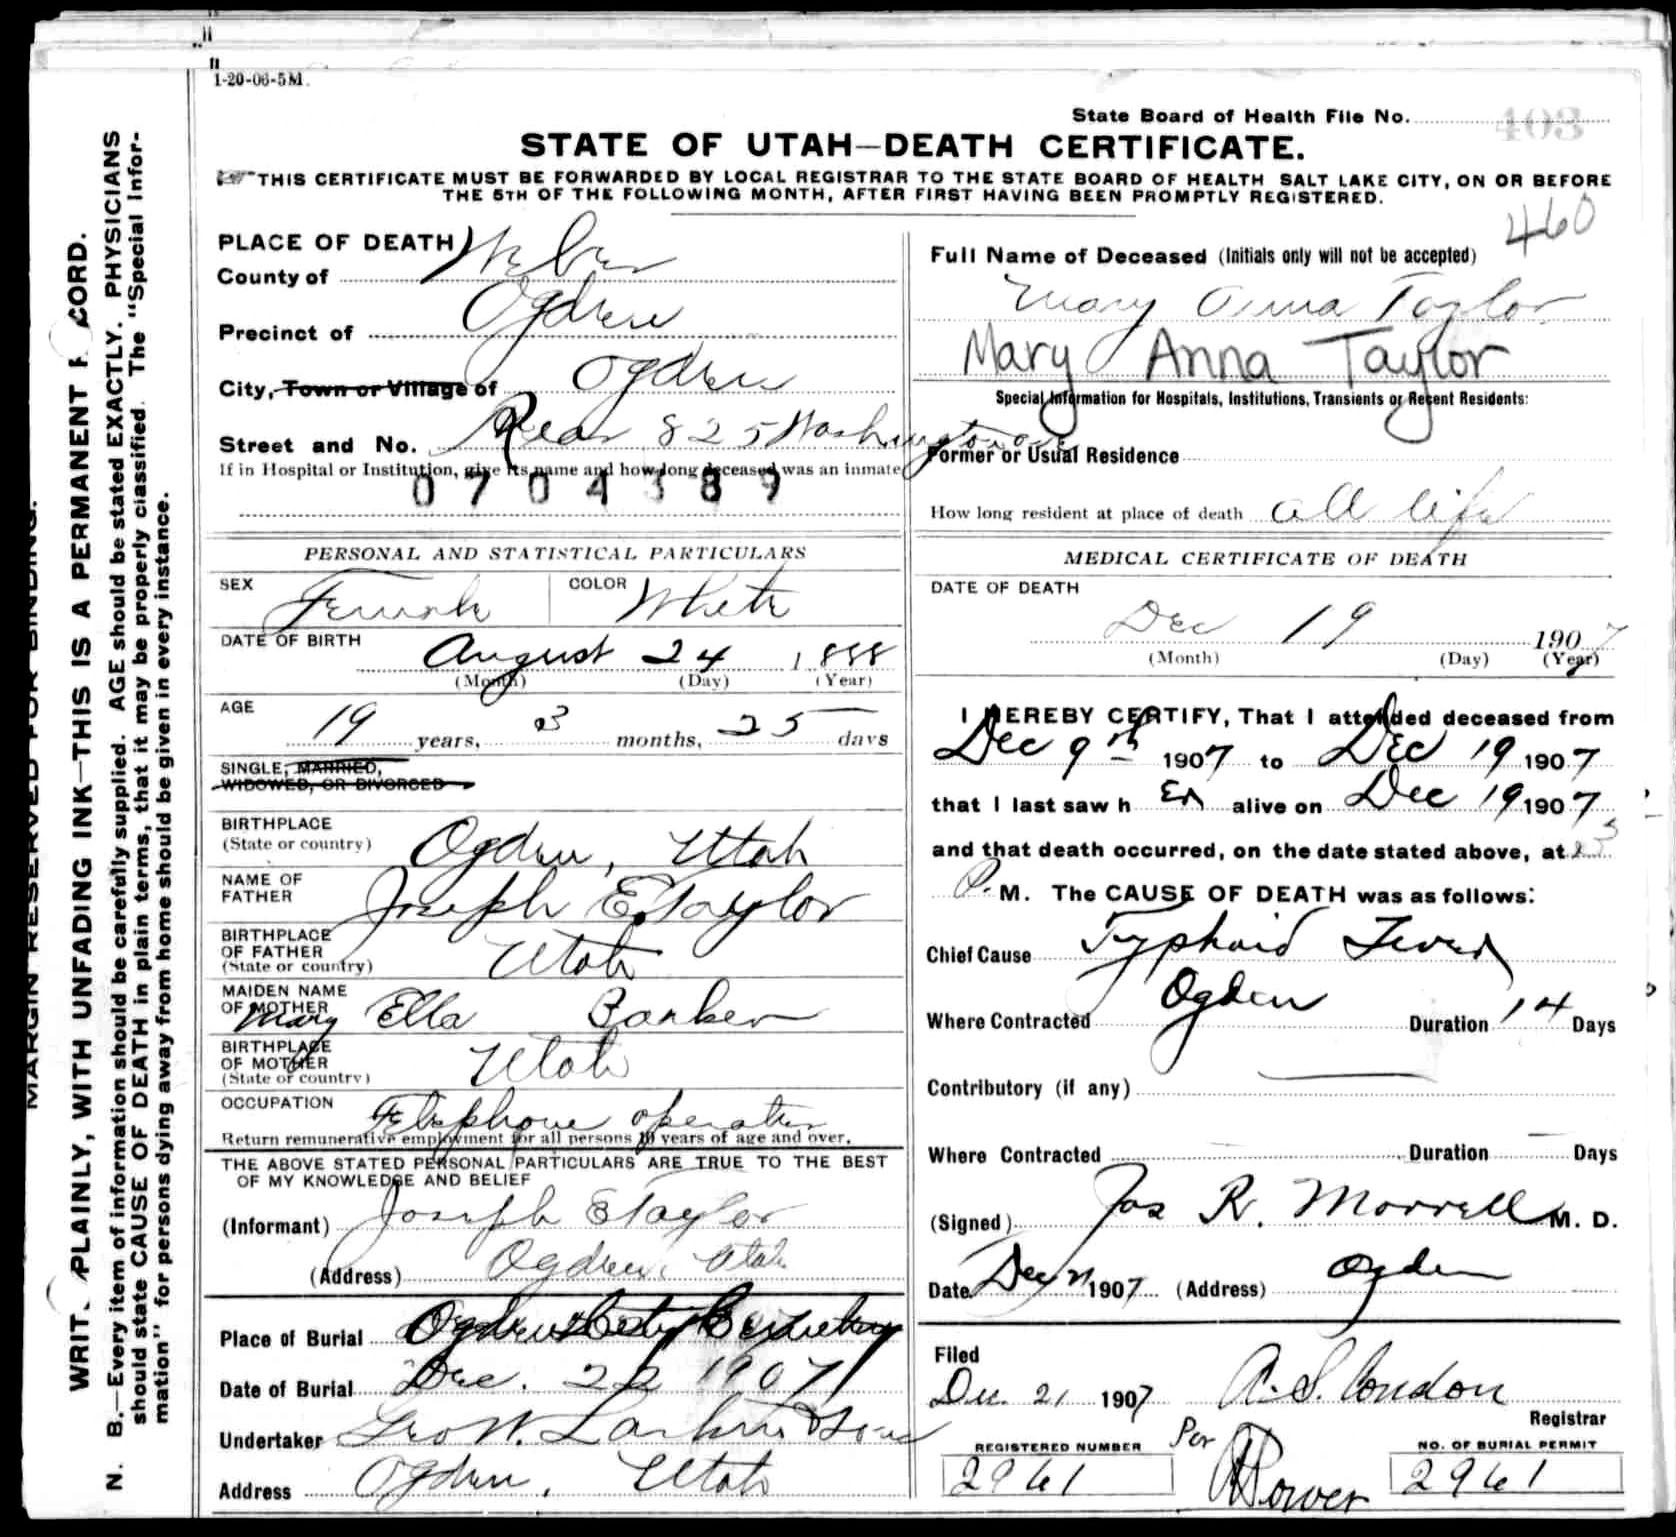 1-20-06-5M.
State Board of Health File No. 403
STATE OF UTAH—DEATH CERTIFICATE.
THIS CERTIFICATE MUST BE FORWARDED BY LOCAL REGISTRAR TO THE STATE BOARD OF HEALTH SALT LAKE CITY, ON OR BEFORE
THE 5TH OF THE FOLLOWING MONTH, AFTER FIRST HAVING BEEN PROMPTLY REGISTERED.
460
MARGIN RESERVED FOR BINDING.
WRIT PLAINLY, WITH UNFADING INK—THIS IS A PERMANENT R CORD.
N. B.—Every item of information should be carefully supplied. AGE should be stated EXACTLY. PHYSICIANS
should state CAUSE OF DEATH in plain terms, that it may be properly classified. The "Special Infor-
mation" for persons dying away from home should be given in every instance.
PLACE OF DEATH
County of Weber
Precinct of Ogden
City, Town or Village of Ogden
Street and No. Rear 825 Washington ave
If in Hospital or Institution, give its name and how long deceased was an inmate
0704389
PERSONAL AND STATISTICAL PARTICULARS
SEX Female COLOR White
DATE OF BIRTH
August 24 1888
(Month) (Day) (Year)
AGE
19 years, 3 months, 25 days
SINGLE, MARRIED,
WIDOWED, OR DIVORCED
BIRTHPLACE
(State or country) Ogden, Utah
NAME OF
FATHER Joseph E. Taylor
BIRTHPLACE
OF FATHER
(State or country) Utah
MAIDEN NAME
OF MOTHER
Mary Ella Barker
BIRTHPLACE
OF MOTHER
(State or country) Utah
OCCUPATION Telephone operator
Return remunerative employment for all persons 10 years of age and over.
THE ABOVE STATED PERSONAL PARTICULARS ARE TRUE TO THE BEST
OF MY KNOWLEDGE AND BELIEF
(Informant) Joseph E Taylor
(Address) Ogden, Utah
Place of Burial Ogden City Cemetery
Date of Burial Dec. 22 1907
Undertaker Geo W. Larkin & Sons
Address Ogden, Utah
Full Name of Deceased (Initials only will not be accepted)
Mary Anna Taylor
Mary Anna Taylor
Special Information for Hospitals, Institutions, Transients or Recent Residents:
Former or Usual Residence
How long resident at place of death all life
MEDICAL CERTIFICATE OF DEATH
DATE OF DEATH
Dec 19 1907
(Month) (Day) (Year)
I HEREBY CERTIFY, That I attended deceased from
Dec 9th 1907 to Dec 19 1907
that I last saw h er alive on Dec 19 1907
and that death occurred, on the date stated above, at
P. M. The CAUSE OF DEATH was as follows:
Chief Cause Typhoid Fever
Where Contracted Ogden Duration 14 Days
Contributory (if any)
Where Contracted Duration Days
(Signed) Jos R. Morrell M. D.
Date Dec 21 1907 (Address) Ogden
Filed
Dec. 21 1907 A. S. Condon
Registrar
Per
Power
REGISTERED NUMBER
2961
NO. OF BURIAL PERMIT
2961